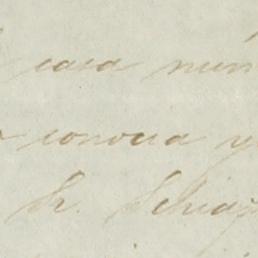 casa núm
conocia y
Sr. Schiap